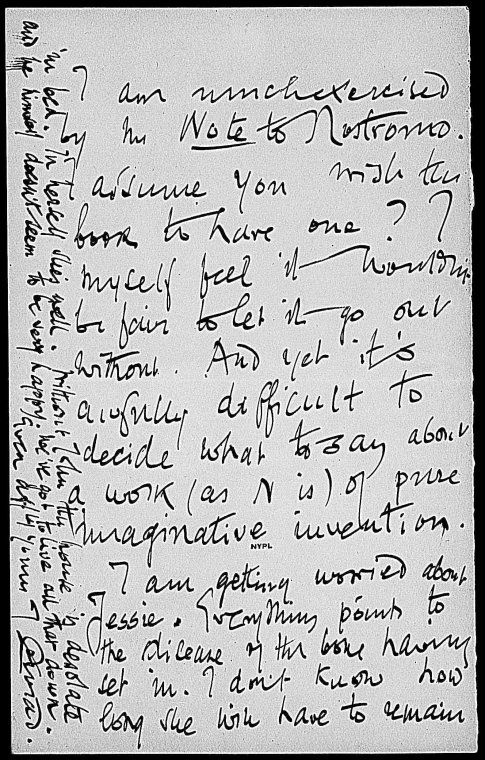 I am much exercised
by the Note to Nostromo.
I assume you wish the
book to have one? I
myself feel it wouldn't
be fair to let it go out
without. And yet it's
awfully difficult to
decide what to say about
a work (as N is) of pure
imaginative invention.
NYPL
I am getting worried about
Jessie. Everything points to
the disease of the bone having
set in. I don't know how
long she will have to remain
in bed. In herself she's well.
without John the house is desolate
and he himself doesn't seem to be very happy; he's got to live all that down.
Conrad.